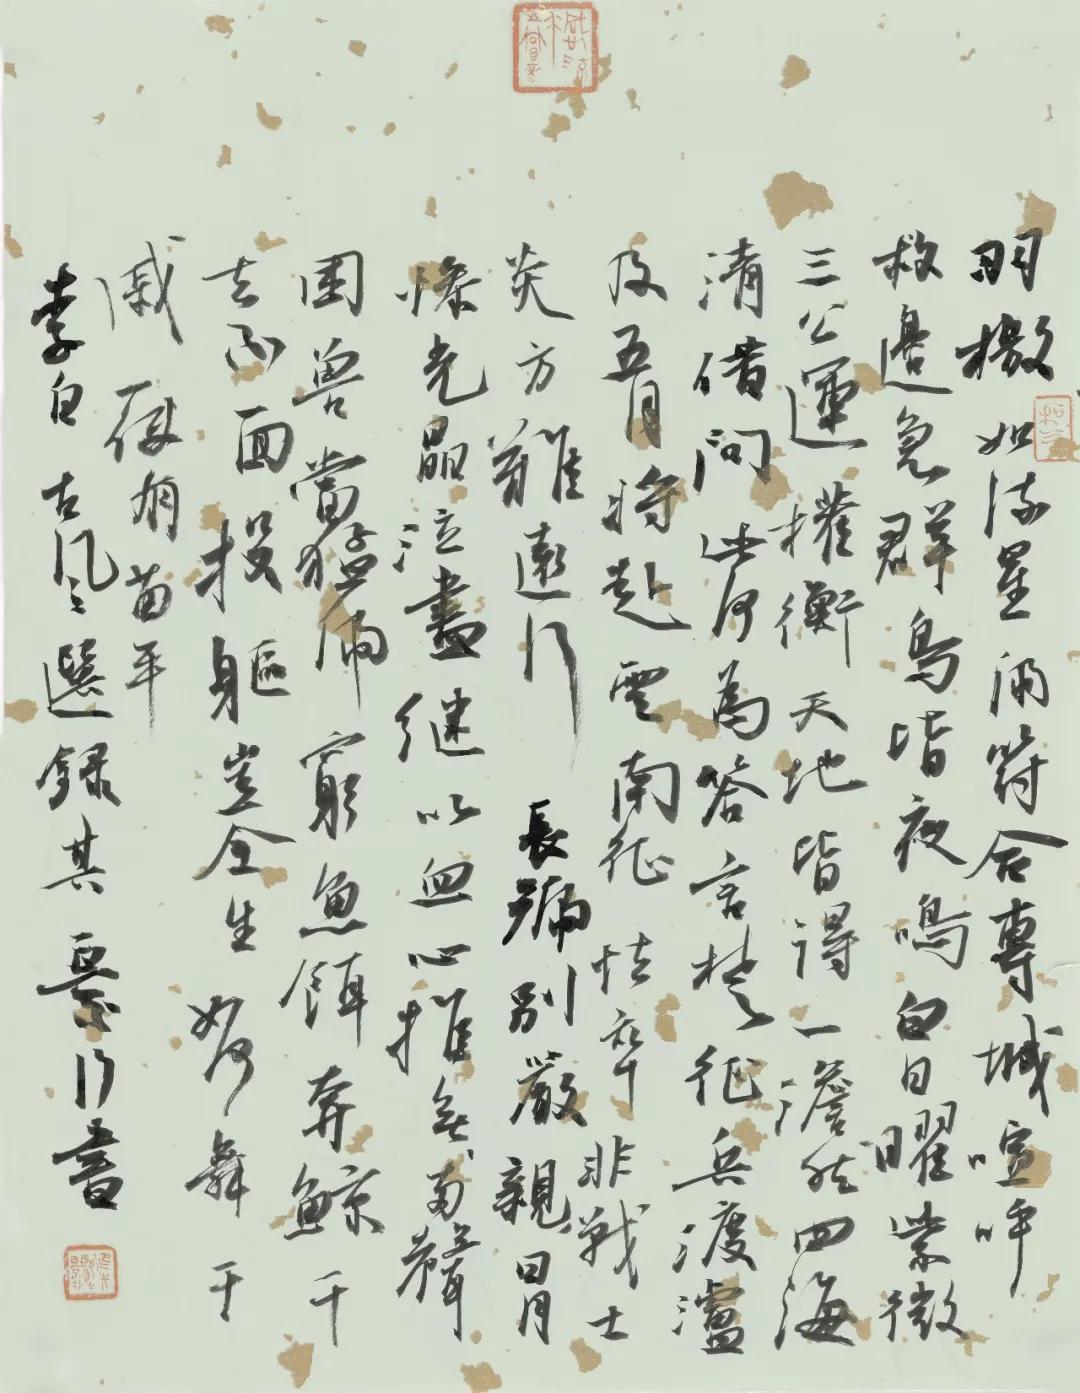 羽檄如流星滿符合專城喧呼
救邊急群鳥皆夜鳴白日曜紫微
三公運權衡天地皆得一澹然四海
清借問此何為答言楚徵兵渡瀘
及五月將赴雲南征怯卒非戰士
炎方難遠行長號別嚴親日月
慘光晶泣盡繼以血心摧無兩聲
困兽當猛虎窮魚餌奔鯨千
去不一回投軀豈全生如何舞干
戚一使有苗平
李白古風選錄其
行書